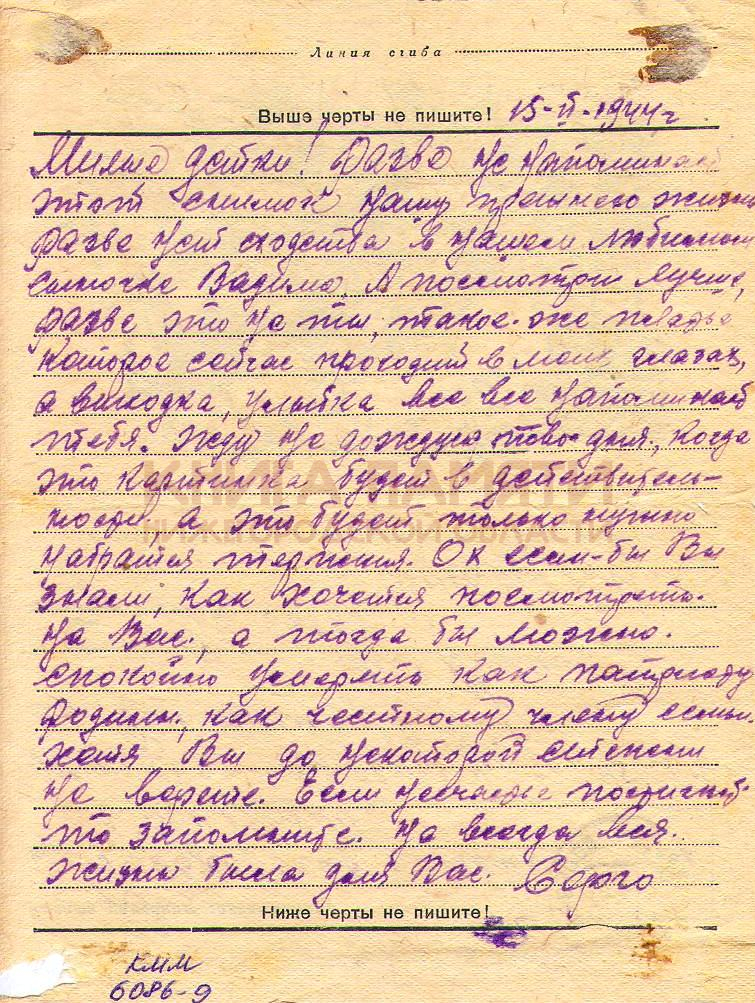 Линия сгиба
Выше черты не пишите! 15-II-1944 г
Милые детки! Разве не напоминает
этот снимок нашу прошлую жизнь
разве нет сходства в нашем любимом
сыночке Вадиме А посмотри лучше,
разве это не ты, такое-же
которое сейчас проходит в моих глазах,
а улыбка все все напоминает
тебя. Жду не дождусь того дня, когда
эта картинка будет в действитель-
ности, а это будет только нужно
набраться терпения. Ох если-бы Вы
знали, как хочется посмотреть
на Вас, а тогда бы можно
спокойно умереть как патриоту
родины, как честному члену семьи
хотя Вы до некоторой степени
не верите. Если несчастье постигнет
то запомните. На всегда вся
жизнь была для Вас. Серго
Ниже черты не пишите!
КММ
6086-9
КНИГА ПАМЯТИ
НИЖЕГОРОДСКОЙ ОБЛАСТИ